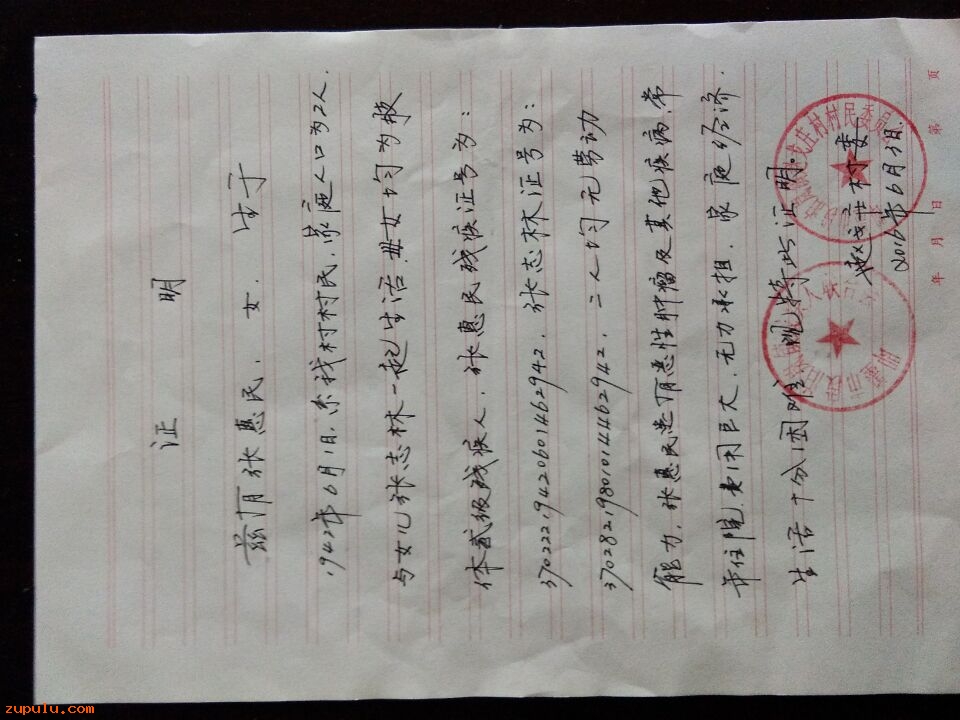 证 明
兹有张惠民，女，生于
1942年6月1日，系我村村民，家庭人口为2人，
与女儿张志林一起生活，母女均为肢
体贰级残疾人，张惠民残疾证号为：
37022219420601462942，张志林证号为：
37028219801014462942，二人均无劳动
能力，张惠民患有恶性肿瘤及其他疾病，常
年住院，费用巨大，无力承担，家庭经济
生活十分困难，就特此证明。
赵戈庄村委
2016年6月3日.
年 月 日 第 页
戈庄村村民委员
zupulu.com